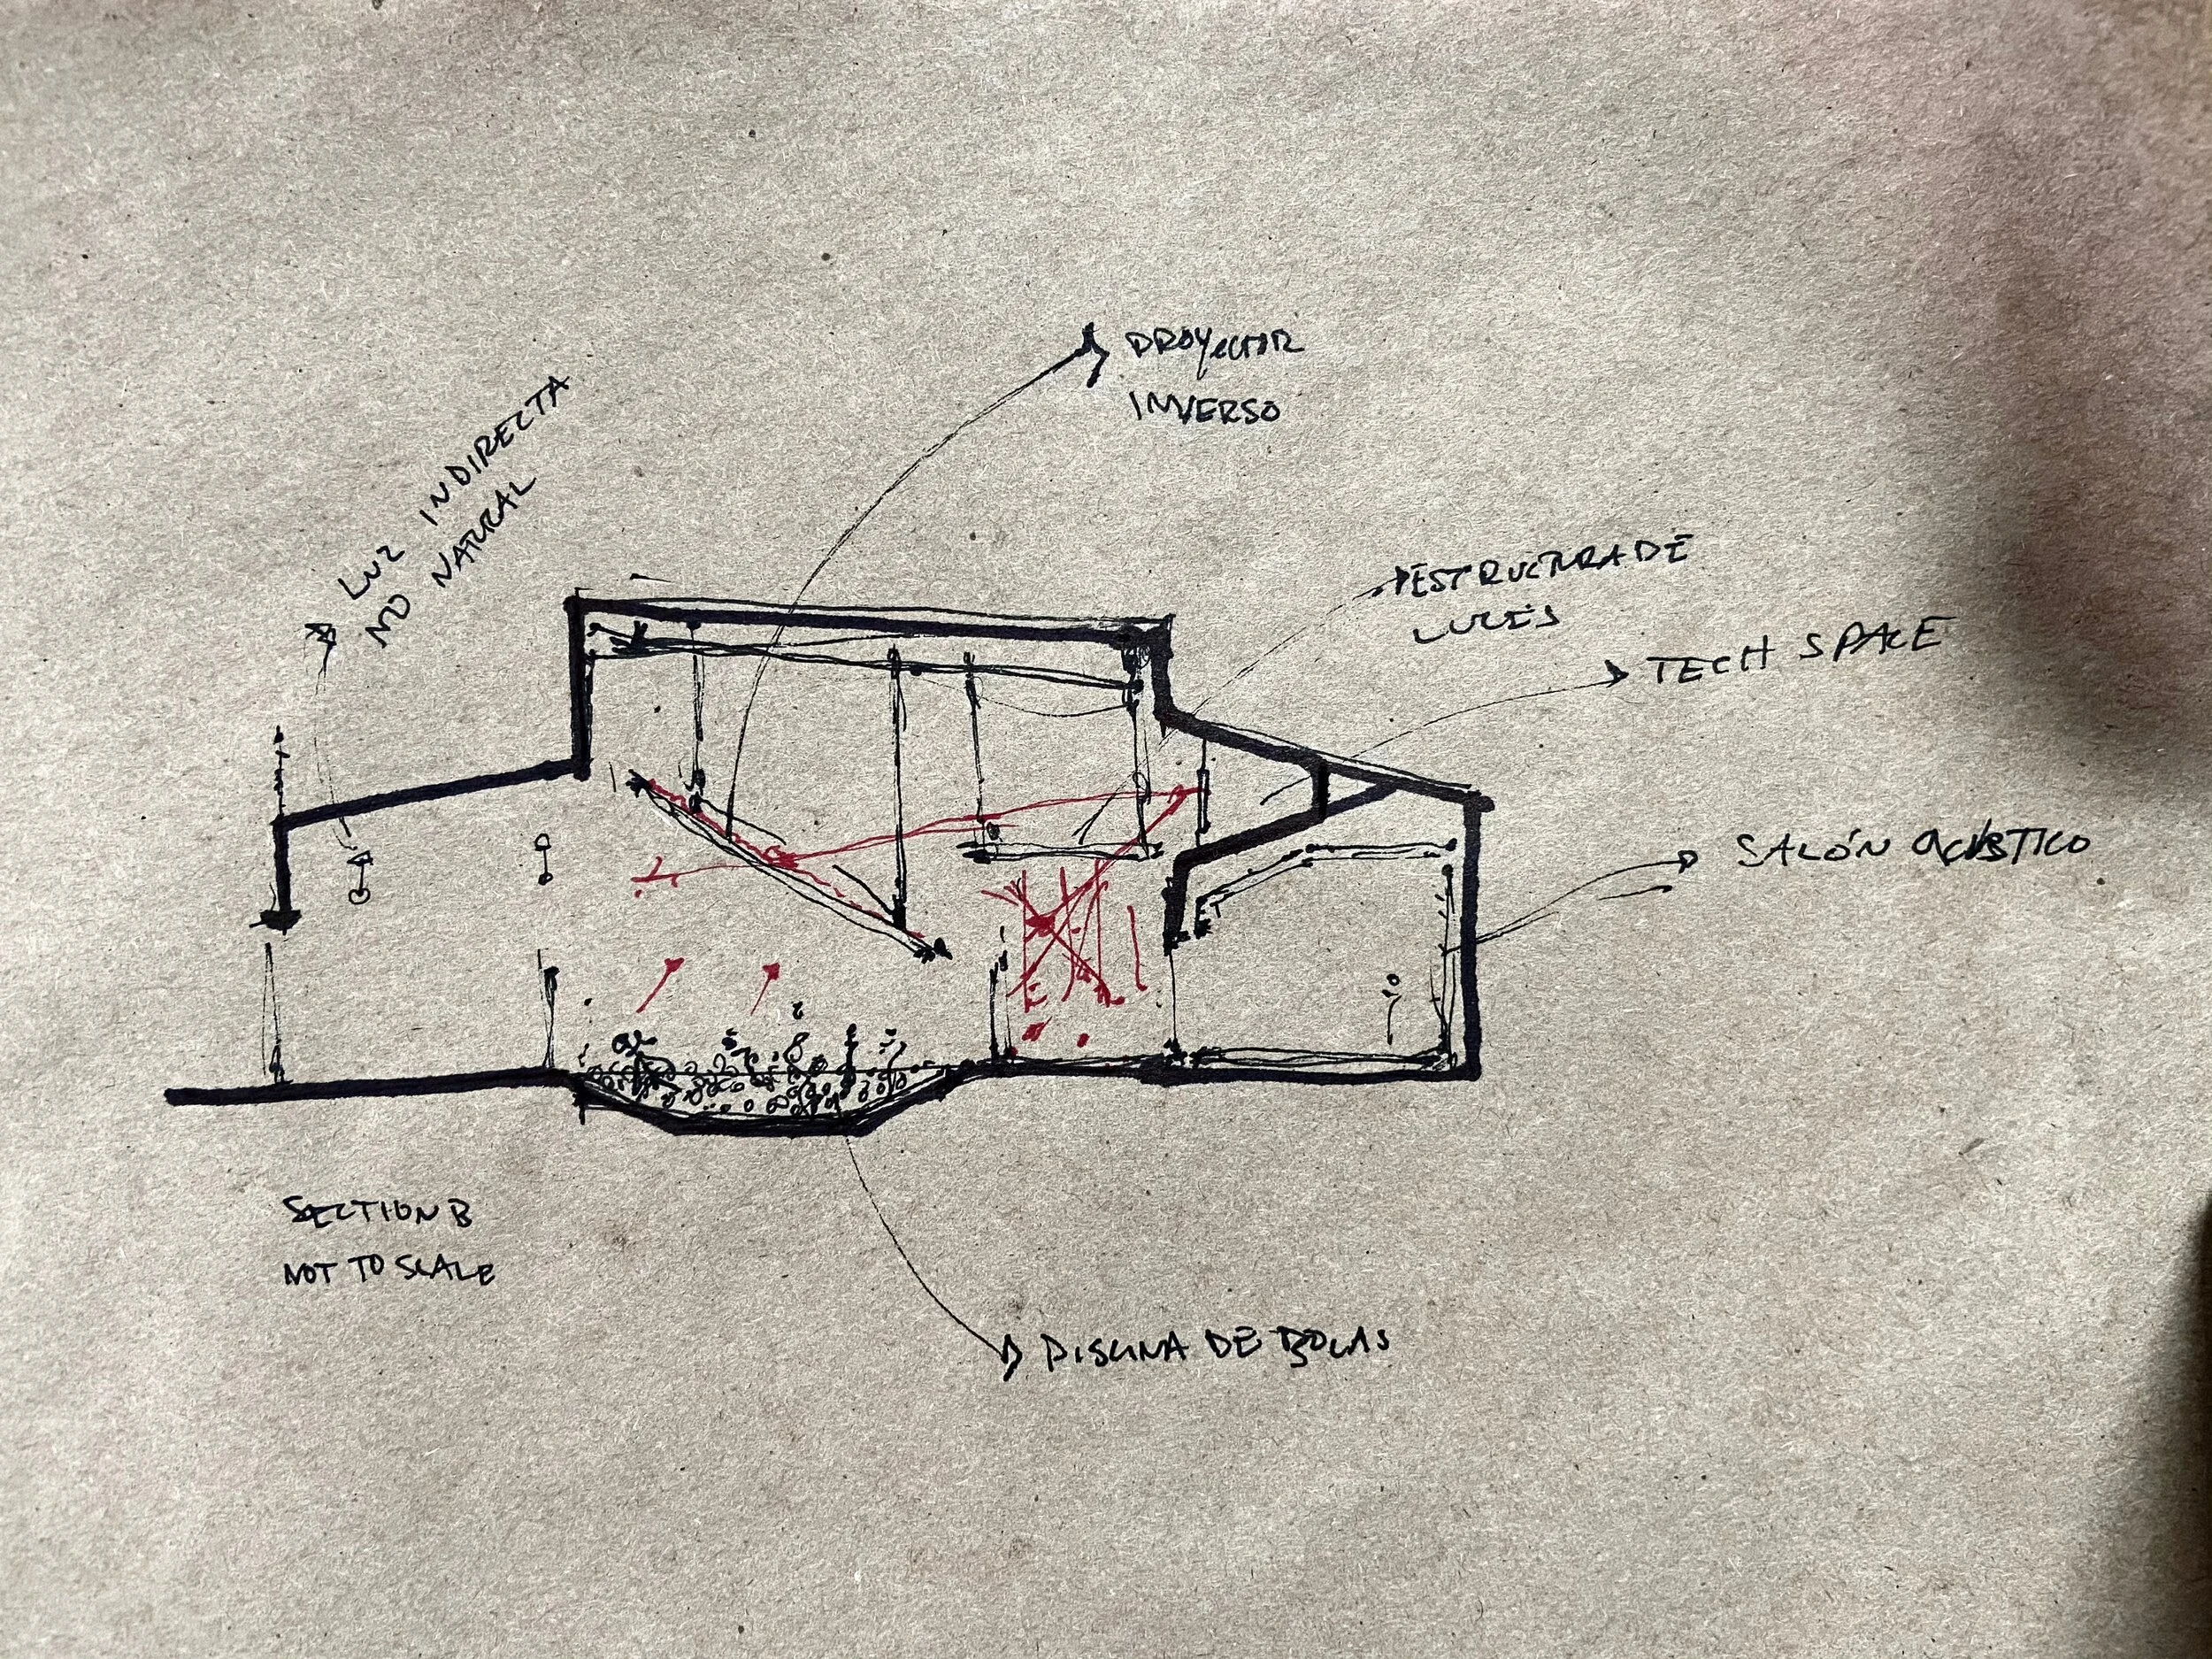 PROYECTOR
INVERSO
LUZ INDIRECTA
NO NATURAL
ESTRUCTURA DE
LUCES
TECH SPACE
SALÓN ACÚSTICO
SECTION B
NOT TO SCALE
PISCINA DE BOLAS